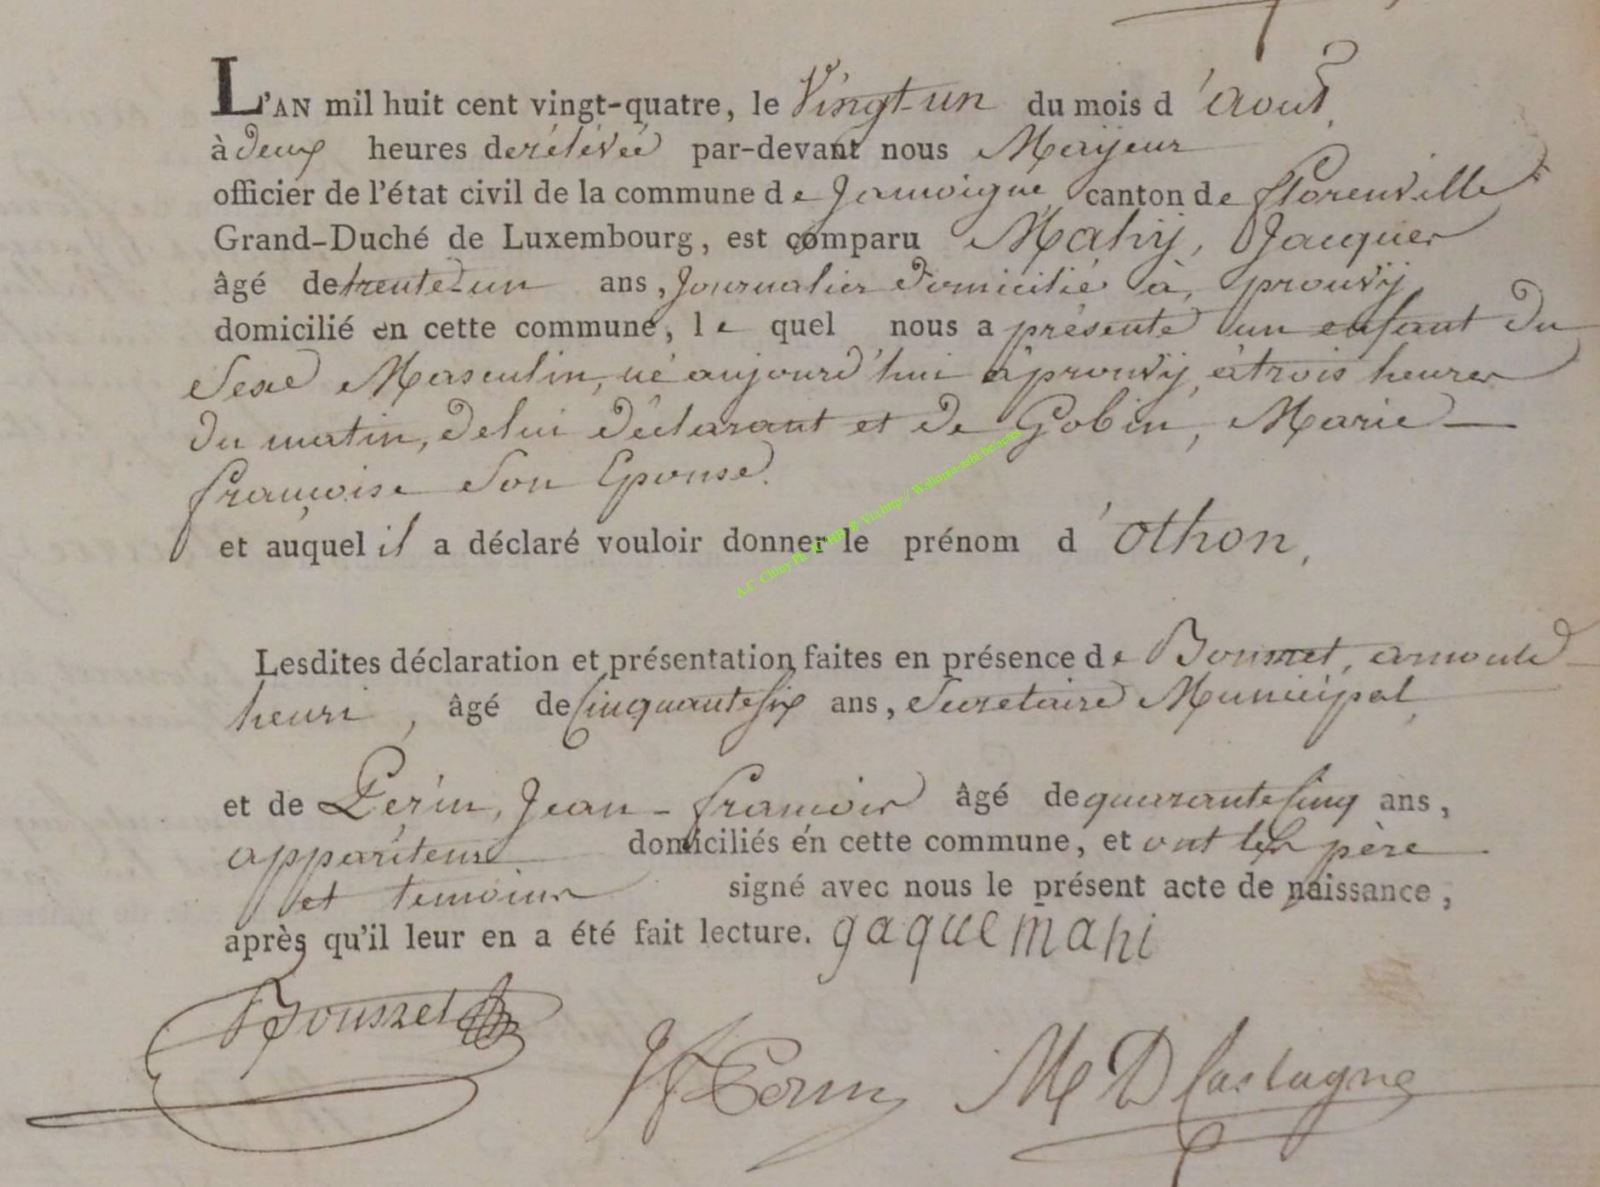 L'AN mil huit cent vingt-quatre, le Vingt-un du mois d'aout,
à deux heures de rélévéé par-devant nous Maÿeur
officier de l'état civil de la commune de Jamoigne, canton de florenville
Grand-Duché de Luxembourg, est comparu Mahÿ, Jacques
âgé de trente-un ans, Journalier domicilié à, prouvÿ
domicilié en cette commune, le quel nous a présenté un enfant du
Sexe Masculin, né aujourd'hui à prouvÿ, à trois heures
du matin, de lui déclarant et de Gobin, Marie
françoise Son Epouse.
et auquel il a déclaré vouloir donner le prénom d'Othon,
Lesdites déclaration et présentation faites en présence de Bousset, arnould
henri, âgé de Cinquante six ans, Secretaire Municipal,
et de Perin, Jean-francois âgé de quarante cinq ans,
appariteur domiciliés en cette commune, et ont les père
et temoins signé avec nous le présent acte de naissance,
après qu'il leur en a été fait lecture. gaque mahi
Bousset JfPerin M D Castagne
A.C. Chiny